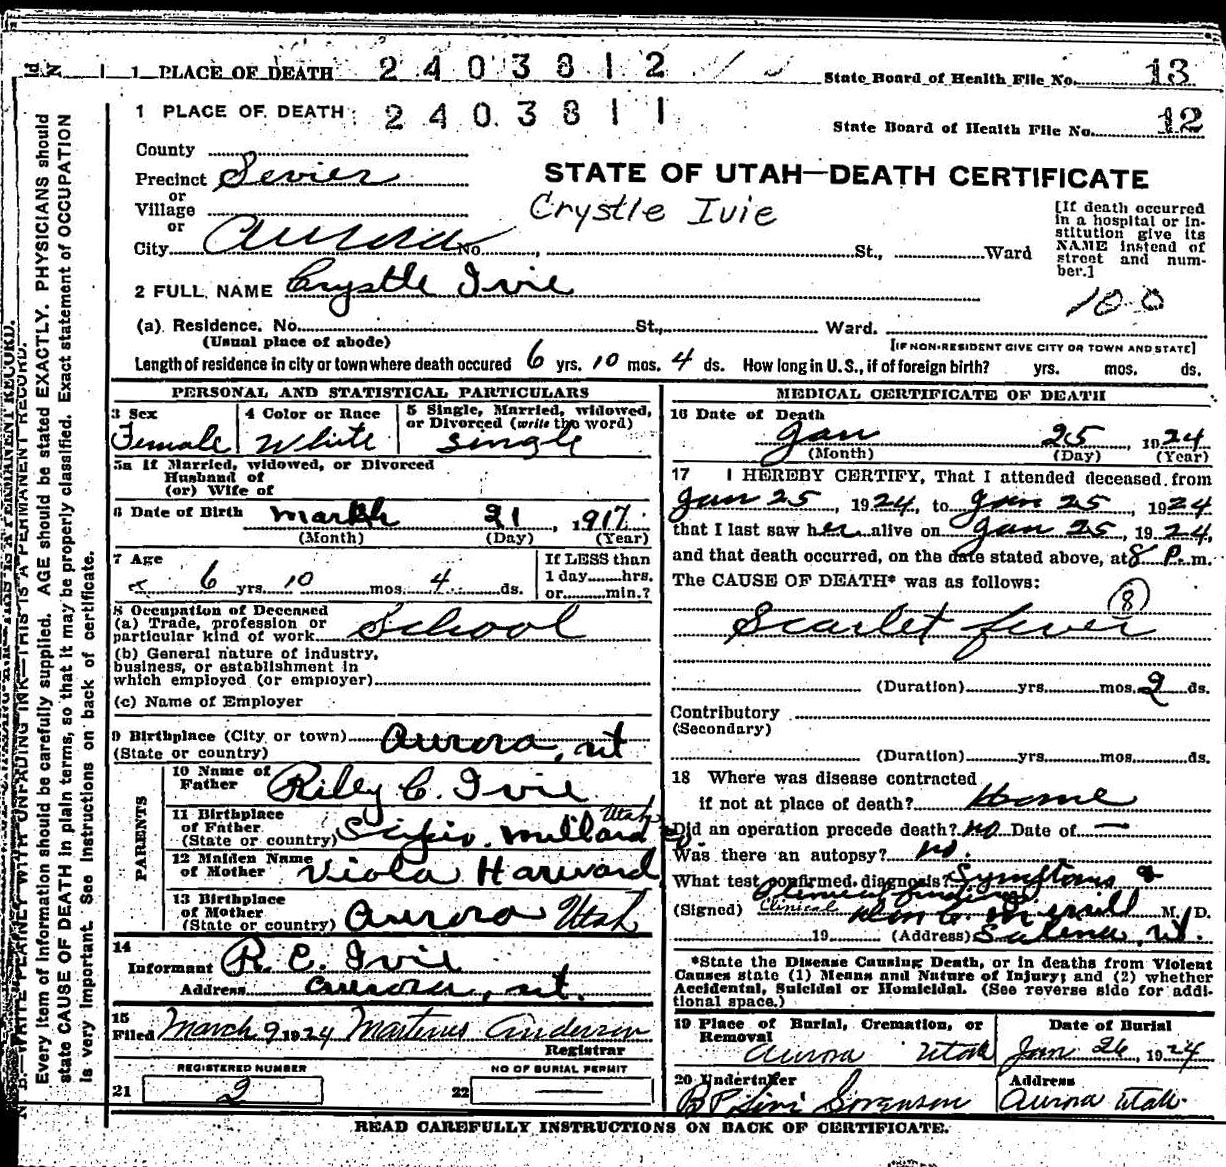 1 PLACE OF DEATH 2403812 State Board of Health File No. 13
1 PLACE OF DEATH 2403811 State Board of Health File No. 12
County
Precinct Sevier
or
Village
or
City Aurora No. St., Ward
STATE OF UTAH—DEATH CERTIFICATE
Crystle Ivie
[If death occurred
in a hospital or in-
stitution give its
NAME instead of
street and num-
ber.]
2 FULL NAME Crystle Ivie
100
(a) Residence. No. St., Ward.
(Usual place of abode) [IF NON-RESIDENT GIVE CITY OR TOWN AND STATE]
Length of residence in city or town where death occured 6 yrs. 10 mos. 4 ds. How long in U. S., if of foreign birth? yrs. mos. ds.
PERSONAL AND STATISTICAL PARTICULARS
3 Sex
Female
4 Color or Race
White
5 Single, Married, widowed,
or Divorced (write the word)
single
5a If Married, widowed, or Divorced
Husband of
(or) Wife of
6 Date of Birth March 21, 1917.
(Month) (Day) (Year)
7 Age
6 yrs. 10 mos. 4 ds.
If LESS than
1 day hrs.
or min.?
8 Occupation of Deceased
(a) Trade, profession or
particular kind of work School
(b) General nature of industry,
business, or establishment in
which employed (or employer)
(c) Name of Employer
9 Birthplace (City or town) Aurora, ut
(State or country)
PARENTS
10 Name of
Father Riley C. Ivie
11 Birthplace
of Father
(State or country) Scipio. Millard Utah
12 Maiden Name
of Mother Viola Harward
13 Birthplace
of Mother
(State or country) Aurora Utah
14
Informant R. C. Ivie
Address Aurora, ut.
15
Filed March 9 1924 Martinus Anderson
Registrar
REGISTERED NUMBER
21 2
NO OF BURIAL PERMIT
22
MEDICAL CERTIFICATE OF DEATH
16 Date of Death
Jan 25, 1924
(Month) (Day) (Year)
17 I HEREBY CERTIFY, That I attended deceased from
Jan 25, 1924, to Jan 25, 1924
that I last saw her alive on Jan 25, 1924,
and that death occurred, on the date stated above, at 8 P. m.
The CAUSE OF DEATH* was as follows:
8
Scarlet fever
(Duration) yrs. mos. 2 ds.
Contributory
(Secondary)
(Duration) yrs. mos. ds.
18 Where was disease contracted
if not at place of death? Home
Did an operation precede death? no Date of —
Was there an autopsy? no.
What test confirmed diagnosis? Symptoms &
Clinical findings
(Signed) Clinical Merrill M. D.
19 (Address) Salina, Ut.
*State the Disease Causing Death, or in deaths from Violent
Causes state (1) Means and Nature of Injury; and (2) whether
Accidental, Suicidal or Homicidal. (See reverse side for addi-
tional space.)
19 Place of Burial, Cremation, or
Removal
Aurora Utah
Date of Burial
Jan 26, 1924
20 Undertaker
Sorensen
Address
Aurora Utah
READ CAREFULLY INSTRUCTIONS ON BACK OF CERTIFICATE.
Every item of information should be carefully supplied. AGE should be stated EXACTLY. PHYSICIANS should
state CAUSE OF DEATH in plain terms, so that it may be properly classified. Exact statement of OCCUPATION
is very important. See Instructions on back of certificate.